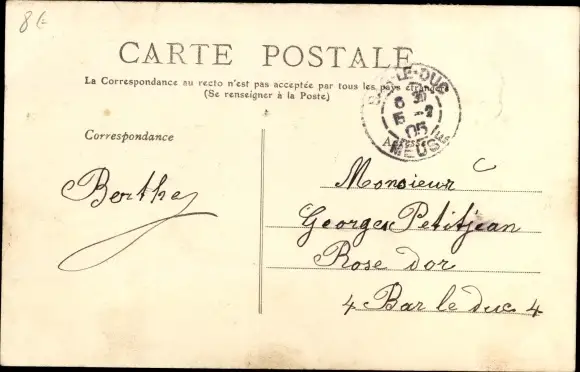 8 €
CARTE POSTALE
La Correspondance au recto n'est pas acceptée par tous les pays étrangers
(Se renseigner à la Poste)
BAR-LE-DUC
6 30
15 -2
05
MEUSE
Correspondance
Adresse
Berthe
Monsieur
Georges Petitjean
Rose d'or
4 Bar le duc 4